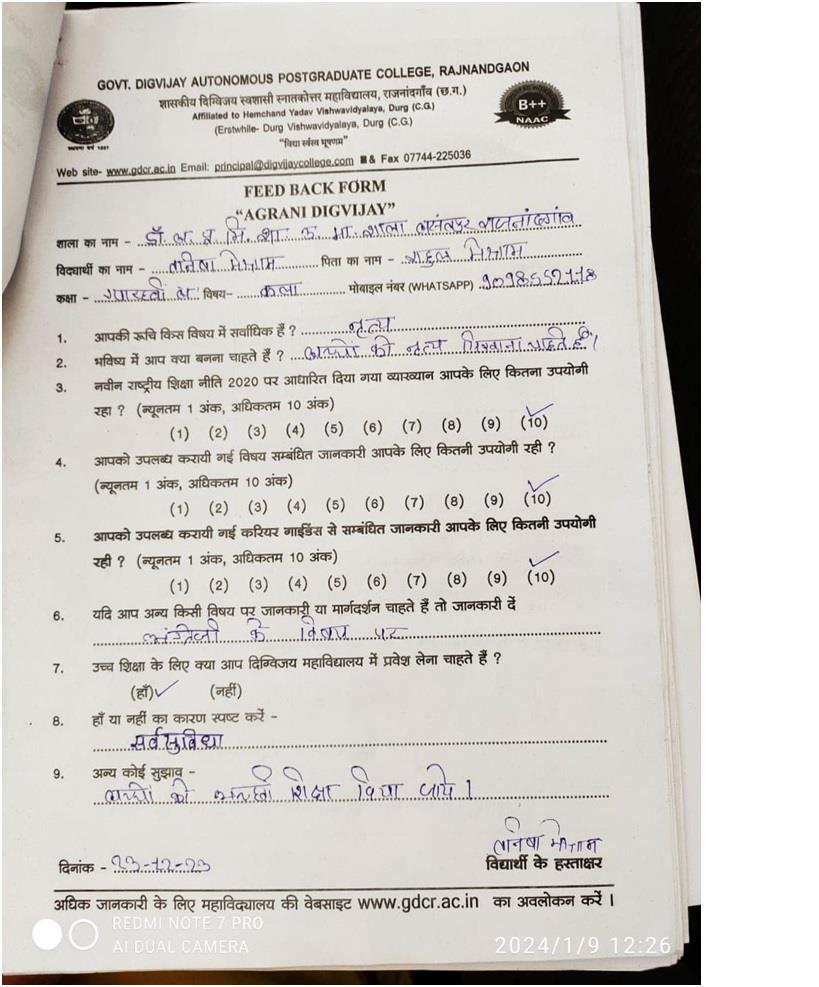 GOVT. DIGVIJAY AUTONOMOUS POSTGRADUATE COLLEGE, RAJNANDGAON
शासकीय दिग्विजय स्वशासी स्नातकोत्तर महाविद्यालय, राजनांदगाँव (छ.ग.)
Affiliated to Hemchand Yadav Vishwavidyalaya, Durg (C.G.)
(Erstwhile- Durg Vishwavidyalaya, Durg (C.G.)
B++
NAAC
Web site- www.gdcr.ac.in Email: principal@digvijaycollege.com & Fax 07744-225036
FEED BACK FORM
"AGRANI DIGVIJAY"
शाला का नाम - डॉ. ब. प्र. मि. शा. उ. मा. शाला बसंतपुर राजनांदगांव
विद्यार्थी का नाम - पिता का नाम - राहुल मेश्राम
कक्षा - विषय- कला मोबाइल नंबर (WHATSAPP)
1. आपकी रूचि किस विषय में सर्वाधिक हैं ? नृत्य
2. भविष्य में आप क्या बनना चाहते हैं ? बच्चों को नृत्य सिखाना चाहते हैं।
3. नवीन राष्ट्रीय शिक्षा नीति 2020 पर आधारित दिया गया व्याख्यान आपके लिए कितना उपयोगी
रहा ? (न्यूनतम 1 अंक, अधिकतम 10 अंक)
(1) (2) (3) (4) (5) (6) (7) (8) (9) (10)
4. आपको उपलब्ध करायी गई विषय सम्बंधित जानकारी आपके लिए कितनी उपयोगी रही ?
(न्यूनतम 1 अंक, अधिकतम 10 अंक)
(1) (2) (3) (4) (5) (6) (7) (8) (9) (10)
5. आपको उपलब्ध करायी गई करियर गाईडेंस से सम्बंधित जानकारी आपके लिए कितनी उपयोगी
रही ? (न्यूनतम 1 अंक, अधिकतम 10 अंक)
(1) (2) (3) (4) (5) (6) (7) (8) (9) (10)
6. यदि आप अन्य किसी विषय पर जानकारी या मार्गदर्शन चाहते हैं तो जानकारी दें
अंग्रेजी के विषय पर
7. उच्च शिक्षा के लिए क्या आप दिग्विजय महाविद्यालय में प्रवेश लेना चाहते हैं ?
(हाँ) (नहीं)
8. हाँ या नहीं का कारण स्पष्ट करें -
सर्वसुविधा
9. अन्य कोई सुझाव -
बच्चों को अच्छी शिक्षा दिया जाये।
दिनांक - 23-12-23
विद्यार्थी के हस्ताक्षर
अधिक जानकारी के लिए महाविद्यालय की वेबसाइट www.gdcr.ac.in का अवलोकन करें ।
REDMI NOTE 7 PRO
AI DUAL CAMERA
2024/1/9 12:26